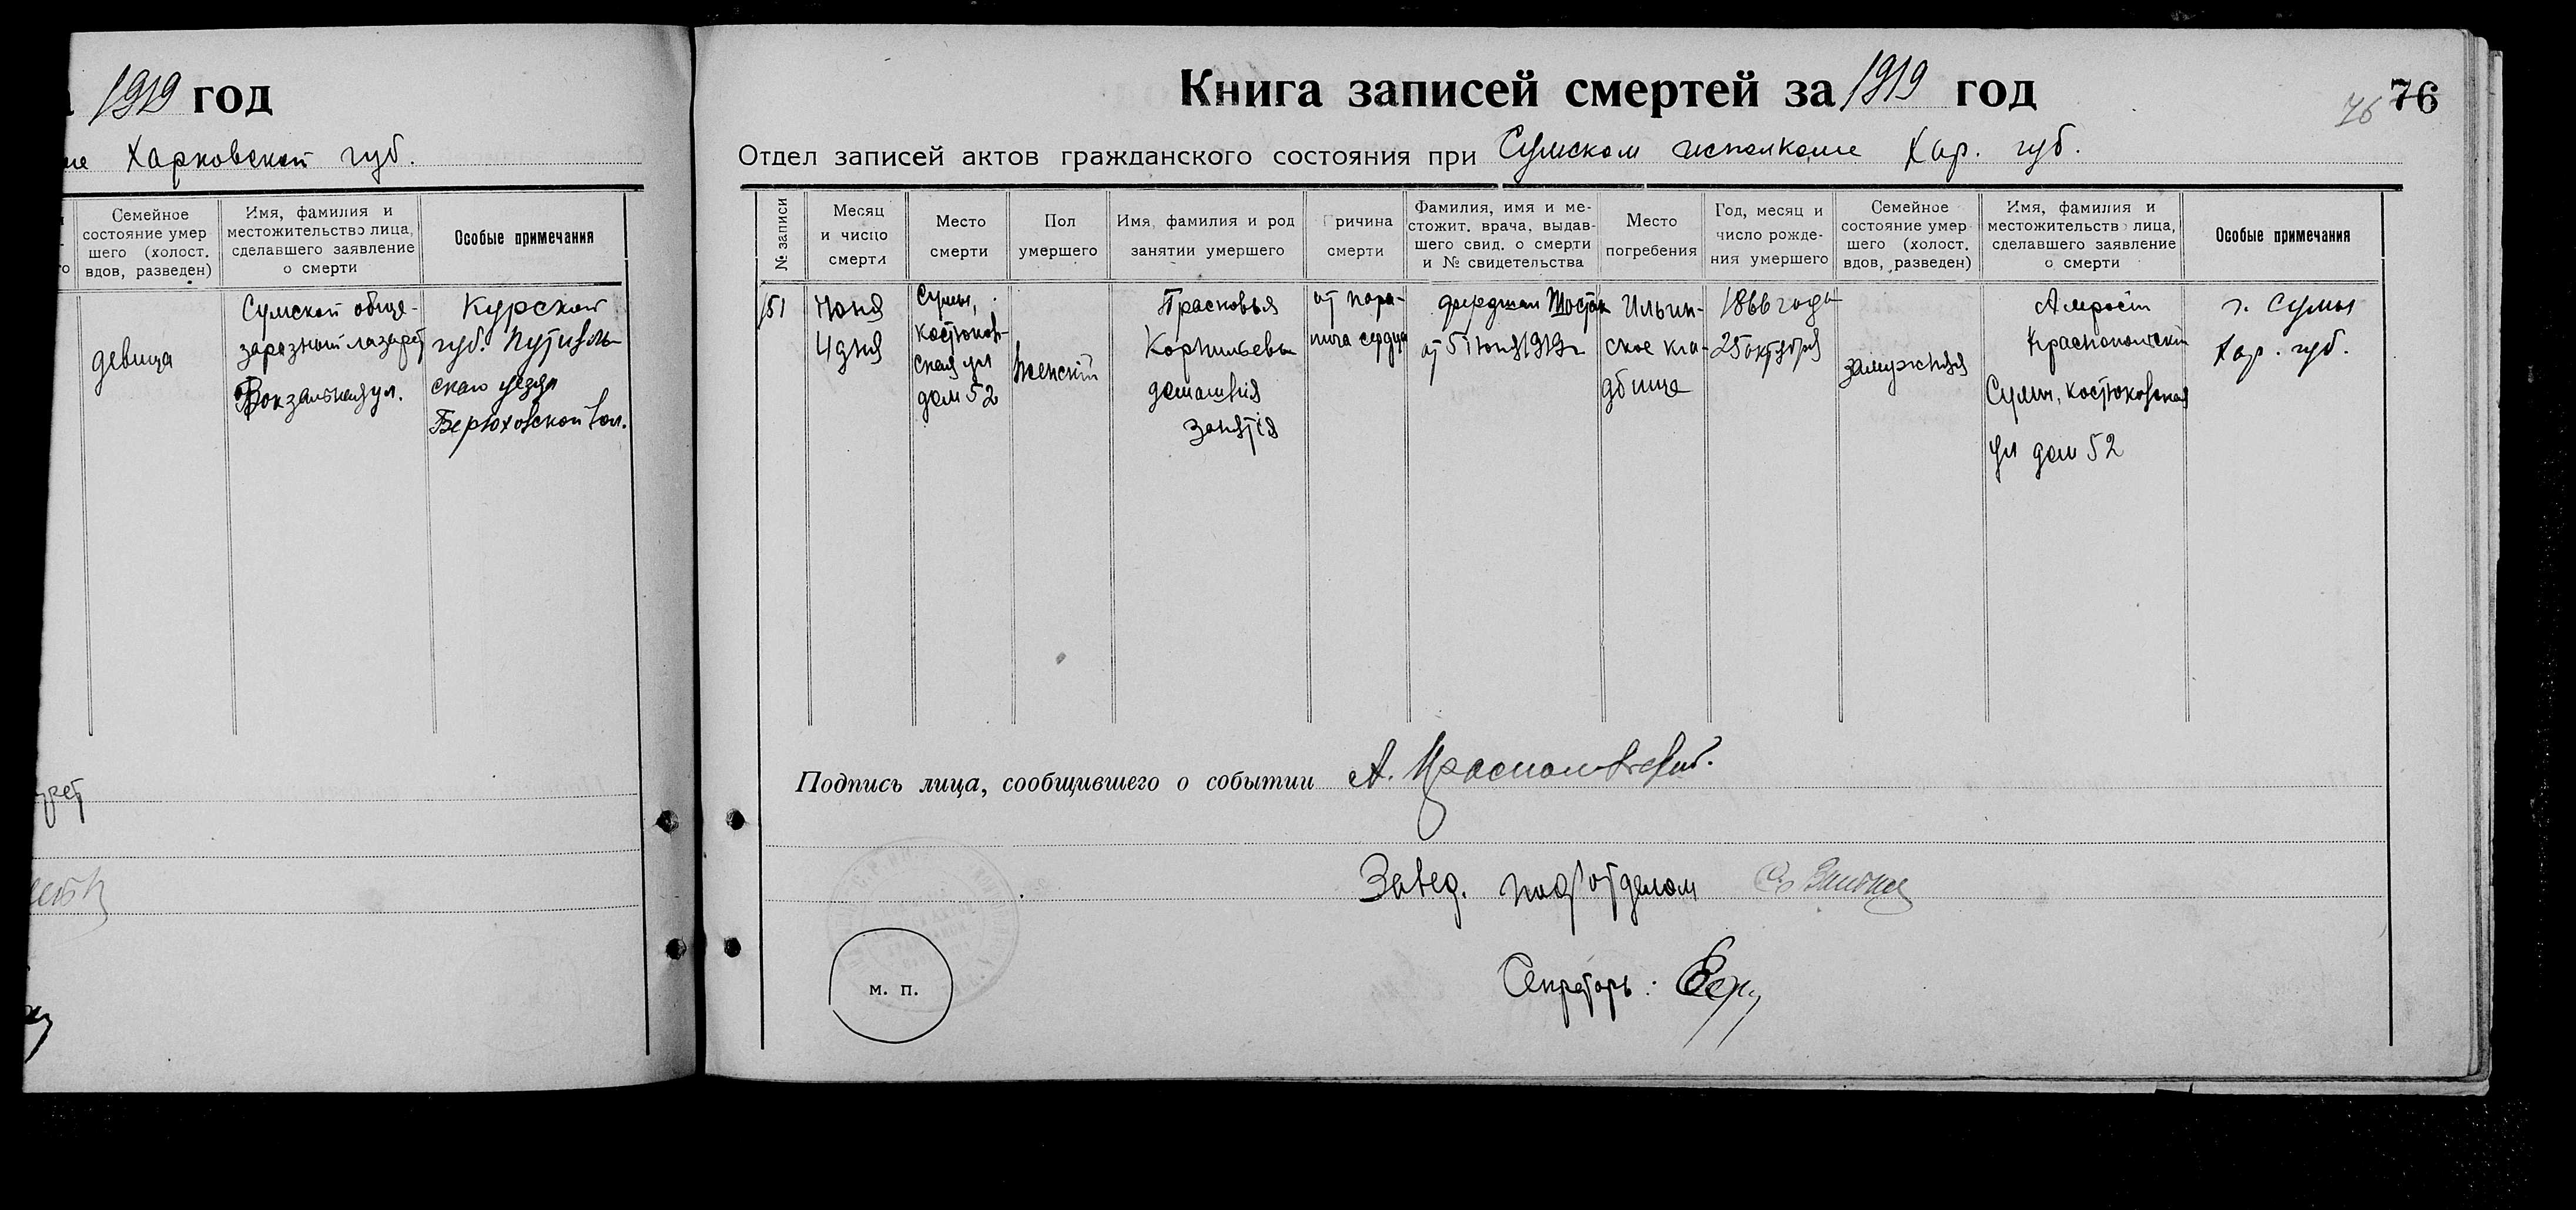 1919 год
Харковской губ.
Семейное
состояние умер
шего (холост.
вдов, разведен)
Имя, фамилия и
местожительство лица,
сделавшего заявление
о смерти
Особые примечания
девица
Сумской обще-
заразный лазарет
Вокзальная ул.
Курской
губ. Путивль-
скаго уезда
Берюховской вол.
Книга записей смертей за 1919 год
76 76
Отдел записей актов гражданского состояния при Сумском исполкоме Хар. губ.
№ записи
Месяц
и число
смерти
Место
смерти
Пол
умершего
Имя, фамилия и род
занятии умершего
Причина
смерти
Фамилия, имя и ме-
стожит. врача, выдав-
шего свид. о смерти
и № свидетельства
Место
погребения
Год, месяц и
число рожде-
ния умершего
Семейное
состояние умер
шего (холост.
вдов, разведен)
Имя, фамилия и
местожительство лица,
сделавшего заявление
о смерти
Особые примечания
151
Июня
4 дня
Сумы,
костюков-
ская ул
дом 52
женский
Прасковья
Корнильева
домашния
занятія
от пара-
лича сердца
от 5 июня 1919 г
Ильин-
ское кла-
дбище
1866 года
25 октября
замужняя
Краснопольский
Сумы, костюковская
ул дом 52
г. Сумы
Хар. губ.
Подпись лица, сообщившего о событии А.
Завед. подотделом
Секретарь:
м. п.